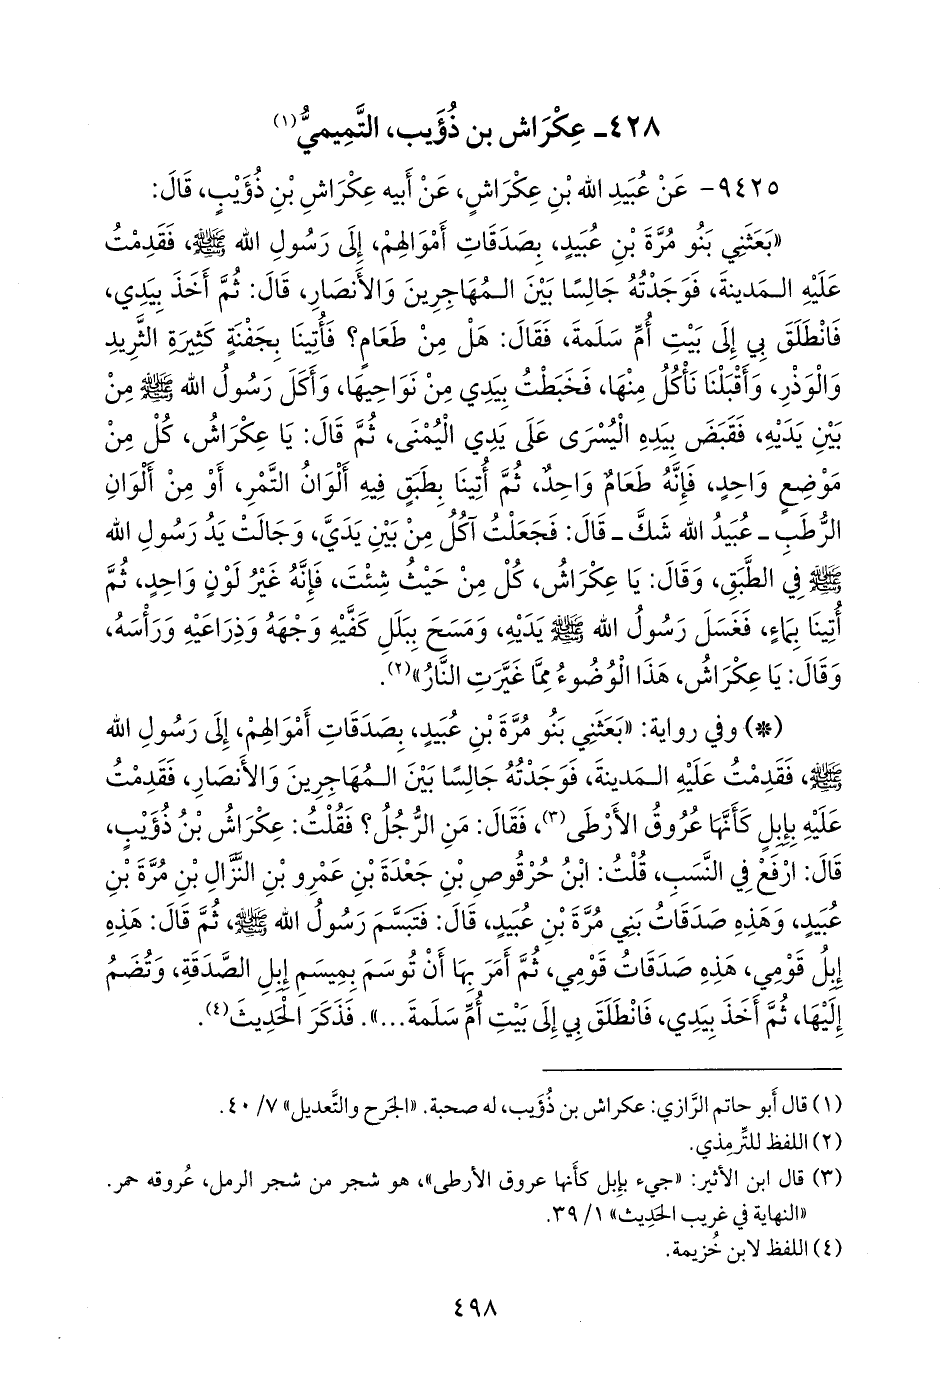 ٤٢٨ـ عِكْرَاش بن ذُؤَيب، التَّمِيميُّ(١)
٩٤٢٥- عَنْ عُبَيدِ الله بْنِ عِكْرَاشٍ، عَنْ أَبيه عِكْرَاشِ بْنِ ذُؤَيْبٍ، قَالَ:
«بَعَثَنِي بَنُو مُرَّةَ بْنِ عُبَيدٍ، بِصَدَقَاتِ أَمْوَالِهِمْ، إِلَى رَسُولِ الله ﷺ، فَقَدِمْتُ
عَلَيْهِ الـمَدينةَ، فَوَجَدْتُهُ جَالِسًا بَيْنَ الـمُهَاجِرِينَ وَالأَنصَارِ، قَالَ: ثُمَّ أَخَذَ بِيَدِي،
فَانْطَلَقَ بِي إِلَى بَيْتِ أُمِّ سَلَمةَ، فَقَالَ: هَلْ مِنْ طَعَامٍ؟ فَأُتِينَا بِجَفْنَةٍ كَثِيرَةِ الثَّرِيدِ
وَالْوَذْرِ، وَأَقْبَلْنَا نَأْكُلُ مِنْهَا، فَخَبَطْتُ بِيَدِي مِنْ نَوَاحِيهَا، وَأَكَلَ رَسُولُ الله ﷺ مِنْ
بَيْنِ يَدَيْهِ، فَقَبَضَ بِيَدِهِ الْيُسْرَى عَلَى يَدِي الْيُمْنَى، ثُمَّ قَالَ: يَا عِكْرَاشُ، كُلْ مِنْ
مَوْضِعٍ وَاحِدٍ، فَإِنَّهُ طَعَامٌ وَاحِدٌ، ثُمَّ أُتِينَا بِطَبَقٍ فِيهِ أَلْوَانُ التَّمْرِ، أَوْ مِنْ أَلْوَانِ
الرُّطَبِ ـ عُبَيدُ الله شَكَّ ـ قَالَ: فَجَعَلْتُ آكُلُ مِنْ بَيْنِ يَدَيَّ، وَجَالَتْ يَدُ رَسُولِ الله
ﷺ فِي الطَّبَقِ، وَقَالَ: يَا عِكْرَاشُ، كُلْ مِنْ حَيْثُ شِئْتَ، فَإِنَّهُ غَيْرُ لَوْنٍ وَاحِدٍ، ثُمَّ
أُتِينَا بِمَاءٍ، فَغَسَلَ رَسُولُ الله ﷺ يَدَيْهِ، وَمَسَحَ بِبَلَلِ كَفَّيْهِ وَجْهَهُ وَذِرَاعَيْهِ وَرَأْسَهُ،
وَقَالَ: يَا عِكْرَاشُ، هَذَا الْوُضُوءُ مِمَّا غَيَّرَتِ النَّارُ»(٢).
(*) وفي رواية: «بَعَثَنِي بَنُو مُرَّةَ بْنِ عُبَيدٍ، بِصَدَقَاتِ أَمْوَالِهِمْ، إِلَى رَسُولِ الله
ﷺ، فَقَدِمْتُ عَلَيْهِ الـمَدينةَ، فَوَجَدْتُهُ جَالِسًا بَيْنَ الـمُهَاجِرِينَ وَالأَنصَارِ، فَقَدِمْتُ
عَلَيْهِ بِإِبِلٍ كَأَنَّهَا عُرُوقُ الأَرْطَى(٣)، فَقَالَ: مَنِ الرَّجُلُ؟ فَقُلْتُ: عِكْرَاشُ بْنُ ذُؤَيْبٍ،
قَالَ: ارْفَعْ فِي النَّسَبِ، قُلْتُ: ابْنُ حُرْقُوصِ بْنِ جَعْدَةَ بْنِ عَمْرِو بْنِ النَّزَّالِ بْنِ مُرَّةَ بْنِ
عُبَيدٍ، وَهَذِهِ صَدَقَاتُ بَنِي مُرَّةَ بْنِ عُبَيدٍ، قَالَ: فَتَبَسَّمَ رَسُولُ الله ﷺ، ثُمَّ قَالَ: هَذِهِ
إِبِلُ قَوْمِي، هَذِهِ صَدَقَاتُ قَوْمِي، ثُمَّ أَمَرَ بِهَا أَنْ تُوسَمَ بِمِيسَمِ إِبِلِ الصَّدَقَةِ، وَتُضَمُّ
إِلَيْهَا، ثُمَّ أَخَذَ بِيَدِي، فَانْطَلَقَ بِي إِلَى بَيْتِ أُمِّ سَلَمةَ...». فَذَكَرَ الْحَدِيثَ(٤).
(١) قال أَبو حاتم الرَّازي: عكراش بن ذُؤَيب، له صحبة. «الجَرح والتَّعديل» ٧/ ٤٠.
(٢) اللفظ للتِّرمِذي.
(٣) قال ابن الأَثير: «جيء بإِبل كأَنها عروق الأَرطى»، هو شجر من شجر الرمل، عُروقه حمر.
«النهاية في غريب الحَدِيث» ١/ ٣٩.
(٤) اللفظ لابن خُزيمة.
٤٩٨